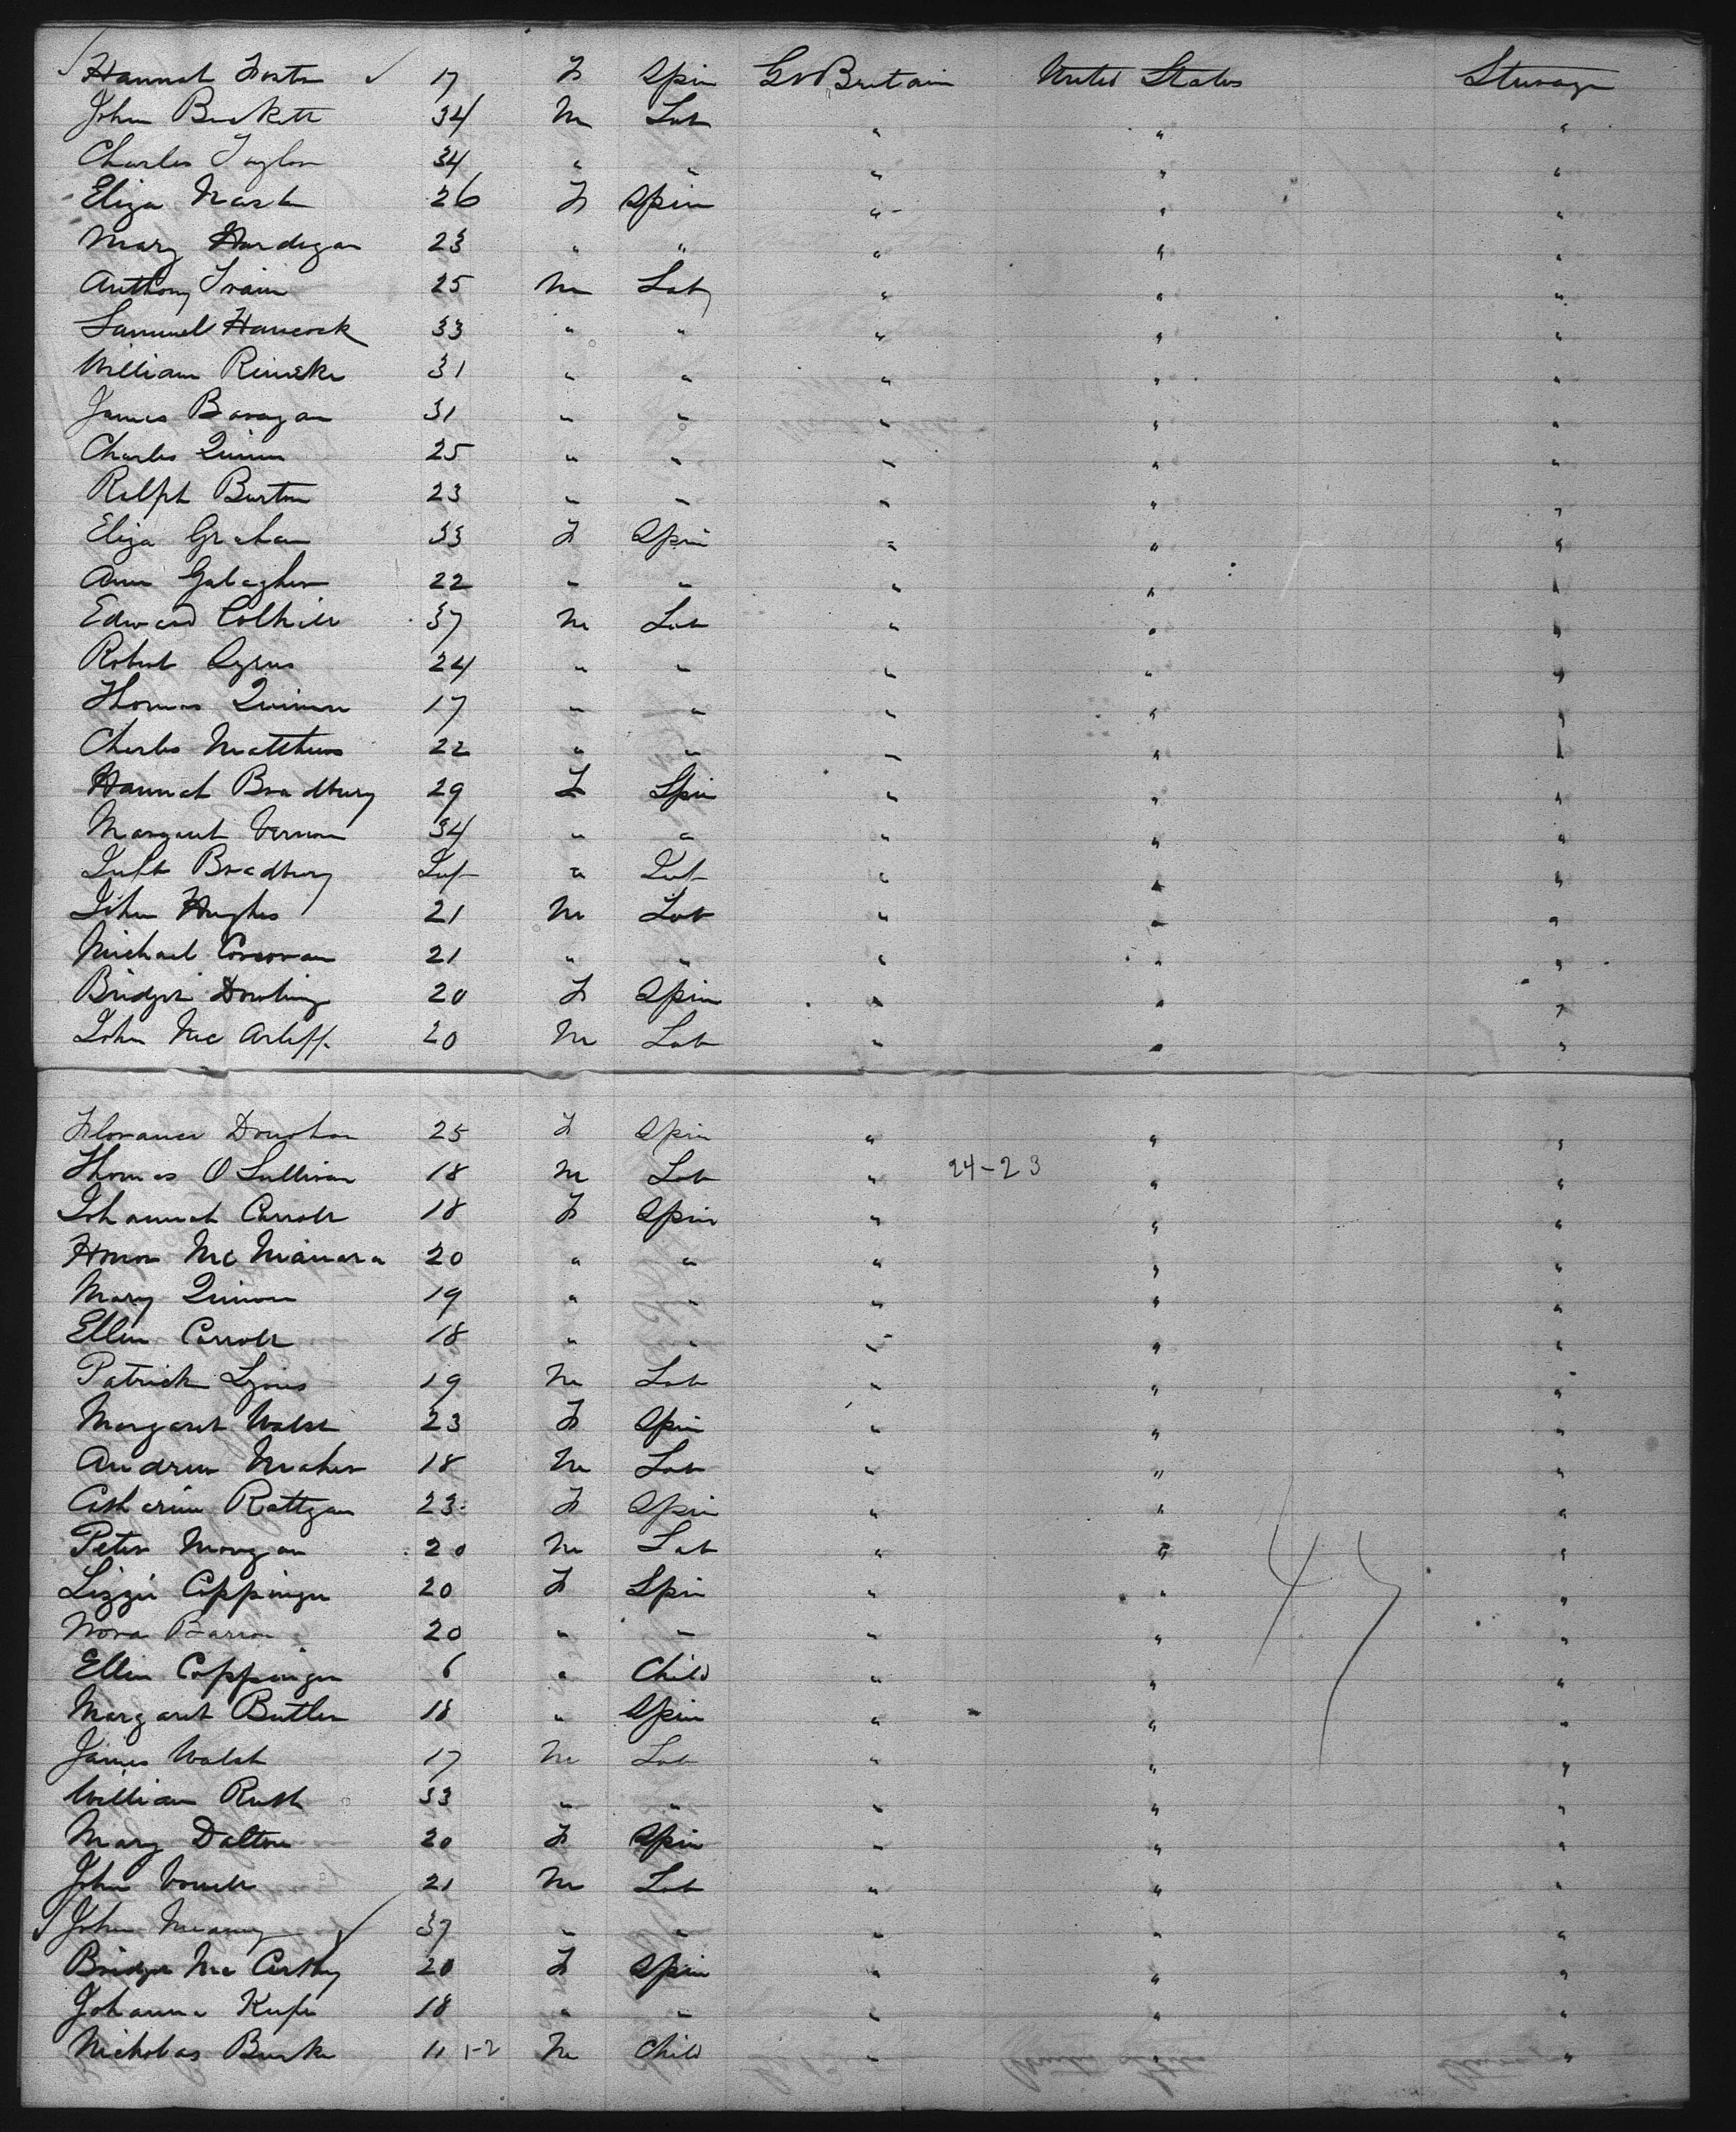 Hannah Foster 17 F Spin Gt Britain United States Steerage
John Beckett 34 M Lab " " "
Charles Taylor 34 " " " " "
Eliza Nash 26 F Spin " " "
Mary Hardegan 23 " " " " "
Anthony Train 25 M Lab " " "
Samuel Hancock 33 " " " " "
William 31 " " " " "
James Baragan 31 " " " " "
Charles Quinn 25 " " " " "
Ralph Burton 23 " " " " "
Eliza Graham 33 F Spin " " "
Ann Galagher 22 " " " " "
Edward Colhill 37 M Lab " " "
Robert 24 " " " " "
Thomas Quinn 17 " " " " "
Charles Matthews 22 " " " " "
Hannah Bradbury 29 F Spin " " "
Margaret Vernon 34 " " " " "
Inft Bradbury Inf " Inf " " "
John Hughes 21 M Lab " " "
Michael Corcoran 21 " " " " "
Bridget Dowling 20 F Spin " " "
John Mc Arliff 20 M Lab " " "
Florance Donohoe 25 F Spin " " "
Thomas O Sullivan 18 M Lab " 24-23 " "
Johannah Carroll 18 F Spin " " "
Honor Mc Namara 20 " " " " "
Mary Quinn 19 " " " " "
Ellen Carroll 18 " " " " "
Patrick Lyons 19 M Lab " " "
Margaret Walsh 23 F Spin " " "
Andrew Maher 18 M Lab " " "
Catherine Rattgan 23 F Spin " " "
Peter Morgan 20 M Lab " " "
Lizzie Coppinger 20 F Spin " " "
Nora Barron 20 " " " " "
Ellen Coppinger 6 " Child " " "
Margaret Butler 18 " Spin " " "
James Walsh 17 M Lab " " "
William Rush 33 " " " " "
Mary Dalton 20 F Spin " " "
John 21 M Lab " " "
John Meaney 37 " " " " "
Bridget Mc Carthy 20 F Spin " " "
Johanna Keefe 18 " " " " "
Nicholas Burke 11 1-2 M Child " " "
47